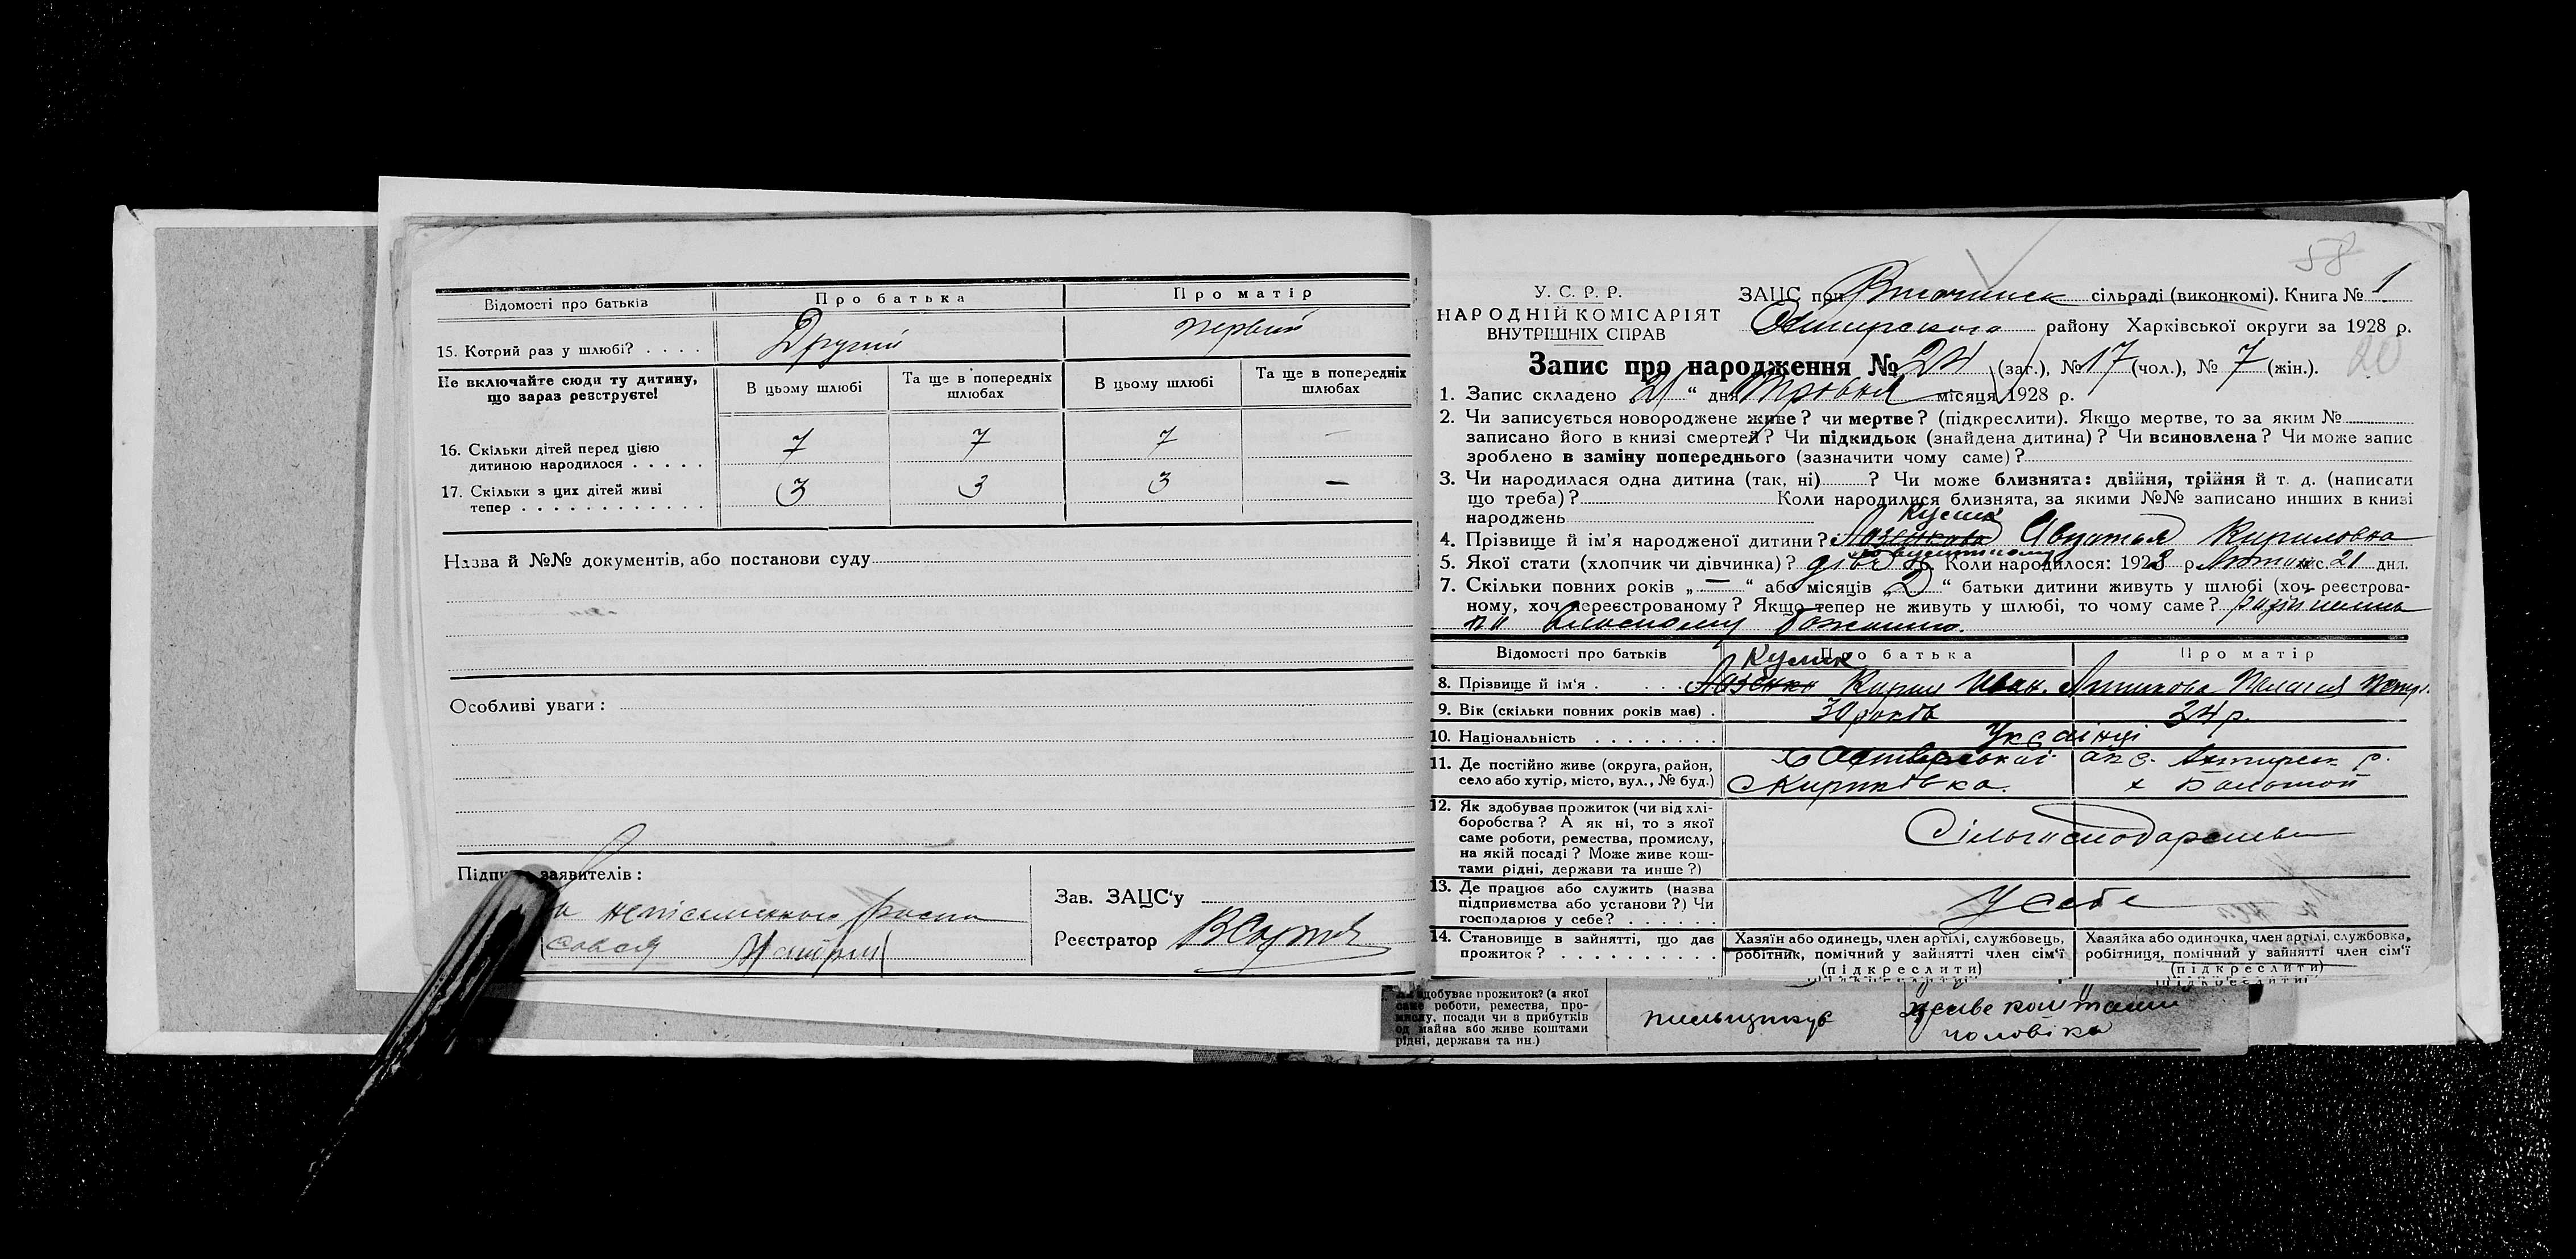 Відомості про батьків
Про батька
Про матір
15. Котрий раз у шлюбі? . . . .
Другий
первий
Не включайте сюди ту дитину,
що зараз реєструєте!
В цьому шлюбі
Та ще в попередніх
шлюбах
В цьому шлюбі
Та ще в попередніх
шлюбах
16. Скільки дітей перед цією
дитиною народилося . . . . .
7 7 7 —
17. Скільки з цих дітей живі
тепер . . . . . . . . . . . .
3 3 3 —
Назва й №№ документів, або постанови суду
Особливі уваги :
заявителів :
Зав. ЗАЦС‘у
Реєстратор
58
У. С. Р. Р.
НАРОДНІЙ КОМІСАРІЯТ
ВНУТРІШНІХ СПРАВ
ЗАЦС при сільраді (виконкомі). Книга № 1
району Харківської округи за 1928 р.
20
Запис про народження № 24 (заг.), № 17 (чол.), № 7 (жін.).
1. Запис складено „21“ дня Травня місяця 1928 р.
2. Чи записується новороджене живе? чи мертве? (підкреслити). Якщо мертве, то за яким №
записано його в книзі смертей? Чи підкидьок (знайдена дитина)? Чи всиновлена? Чи може запис
зроблено в заміну попереднього (зазначити чому саме)?
3. Чи народилася одна дитина (так, ні) ? Чи може близнята: двійня, трійня й т. д. (написати
що треба)? Коли народилися близнята, за якими №№ записано инших в книзі
народжень
Кулик
4. Прізвище й ім‘я народженої дитини? Кириловна
5. Якої стати (хлопчик чи дівчинка)? дівч 6. Коли народилося: 1928 р. міс. 21 дня.
7. Скільки повних років „—“ або місяців „2“ батьки дитини живуть у шлюбі (хоч реєстрова-
ному, хоч нереєстрованому? Якщо тепер не живуть у шлюбі, то чому саме? розійшлись
по власному бажанию.
Відомості про батьків
Про батька
Про матір
Кулик
8. Прізвище й ім‘я . . . . Лазенко Кирил Иван.
9. Вік (скільки повних років має) .
30 років
34 р.
10. Національність . . . . . . . .
Українці
11. Де постійно живе (округа, район,
село або хутір, місто, вул., № буд.)
окр. Ахтирск р.
Кириківка.
12. Як здобуває прожиток (чи від хлі-
боробства? А як ні, то з якої
саме роботи, ремества, промислу,
на якій посаді? Може живе кош-
тами рідні, держави та инше?)
13. Де працює або служить (назва
підприємства або установи?) Чи
господарює у себе? . . . . . .
У себе
14. Становище в зайнятті, що дає
прожиток? . . . . . . . . . .
Хазяїн або одинець, член артілі, службовець,
робітник, помічний у зайнятті член сім‘ї
(підкреслити)
Хазяйка або одиночка, член артілі, службовка,
робітниця, помічний у зайнятті член сім‘ї
(підкреслити)
здобуває прожиток? (з якої
саме роботи, ремества, про-
мислу, посади чи з прибутків
од майна або живе коштами
рідні, держави та ин.)
живе коштами
чоловіка